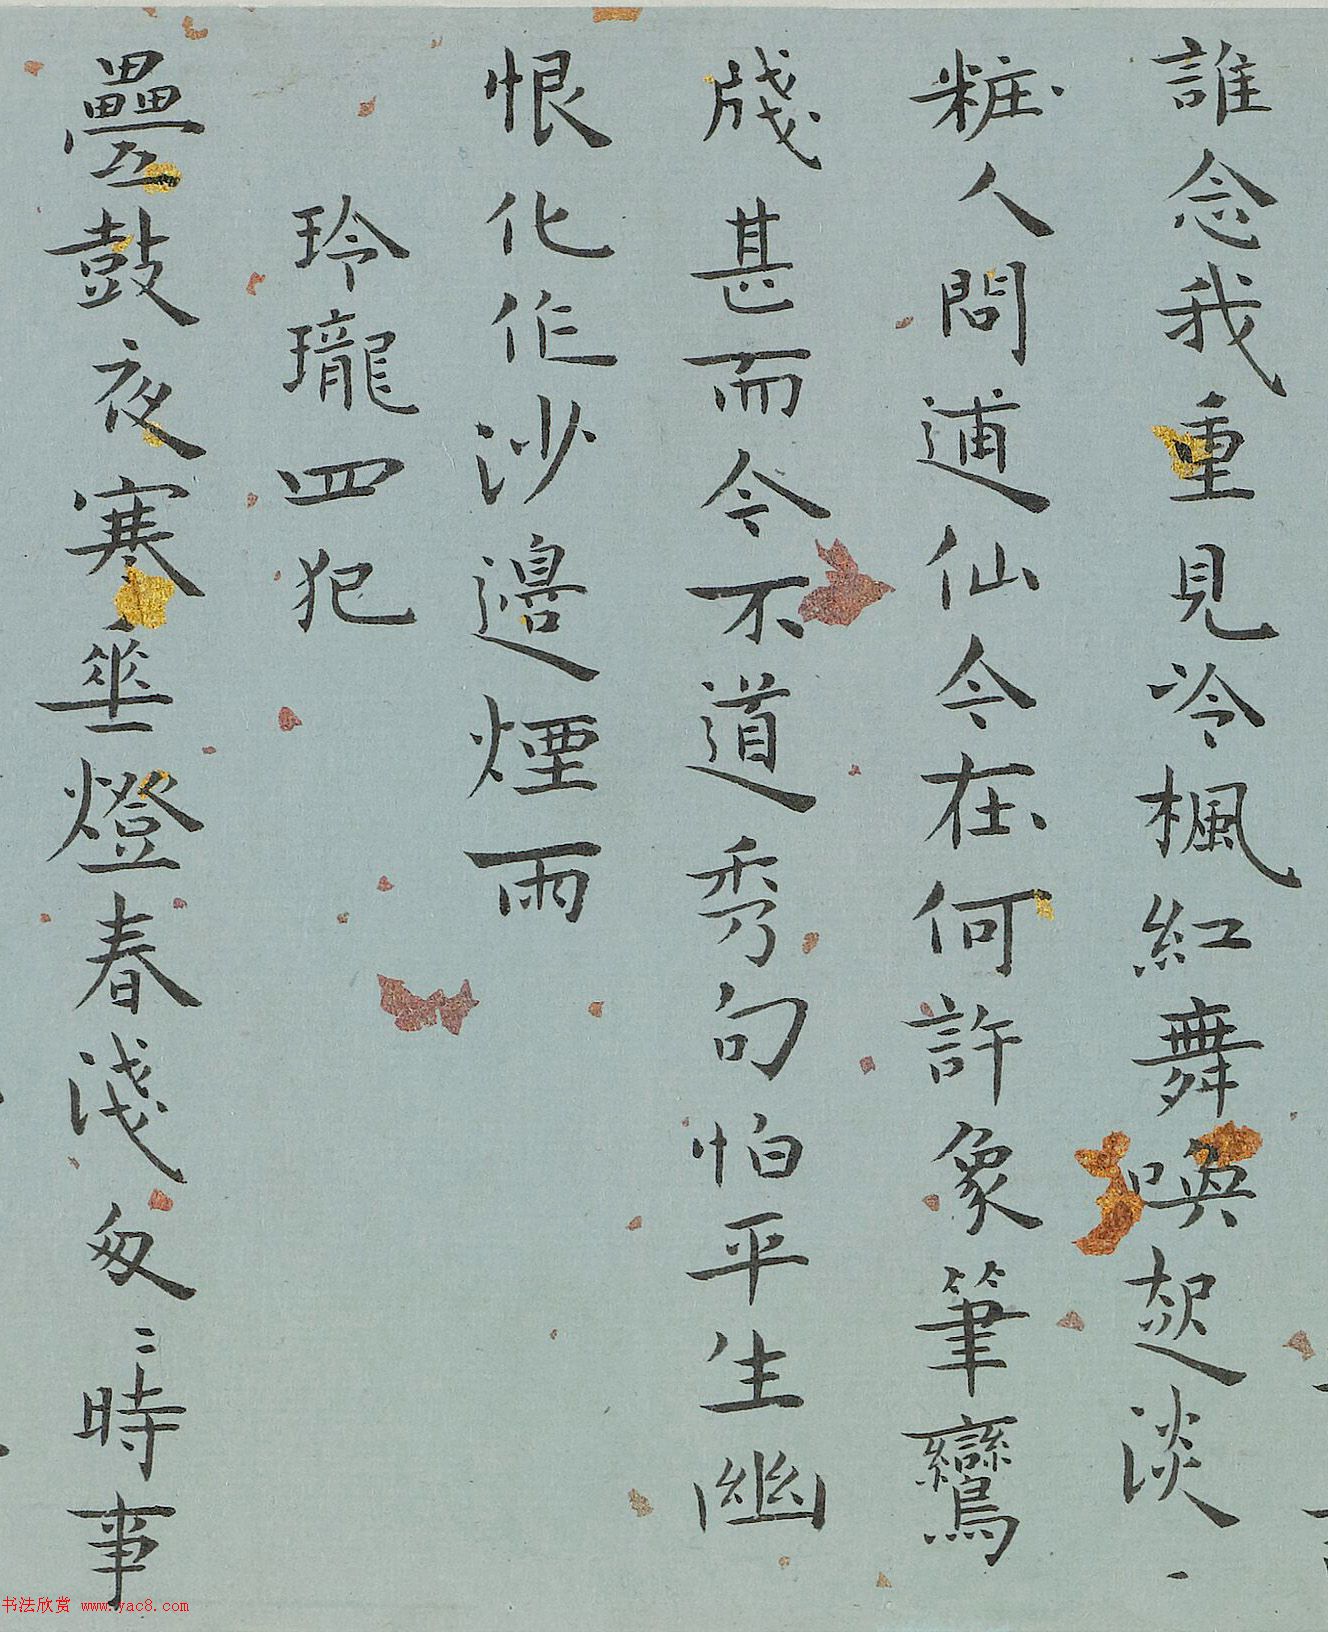 誰念我重見冷楓紅舞喚起淡
粧人問逋仙今在何許象筆鸞
牋甚而今不道秀句怕平生幽
恨化作沙邊煙雨
玲瓏四犯
疊鼓夜寒華燈春淺匆〻時事
书法欣赏 www.yac8.com